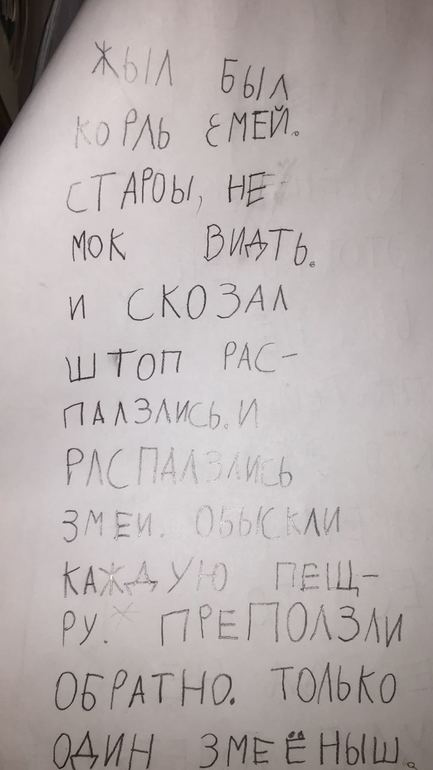 ЖЫЛ БЫЛ
КОРЛЬ ЕМЕЙ.
СТАРОЫ, НЕ
МОК ВИДТЬ.
И СКОЗАЛ
ШТОП РАС-
ПАЛЗЛИСЬ. И
РАСПАЛЗЛИСЬ
ЗМЕИ. ОБЫСКЛИ
КАЖДУЮ ПЕЩ-
РУ. ПРЕПОЛЗЛИ
ОБРАТНО. ТОЛЬКО
ОДИН ЗМЕЁНЫШ.